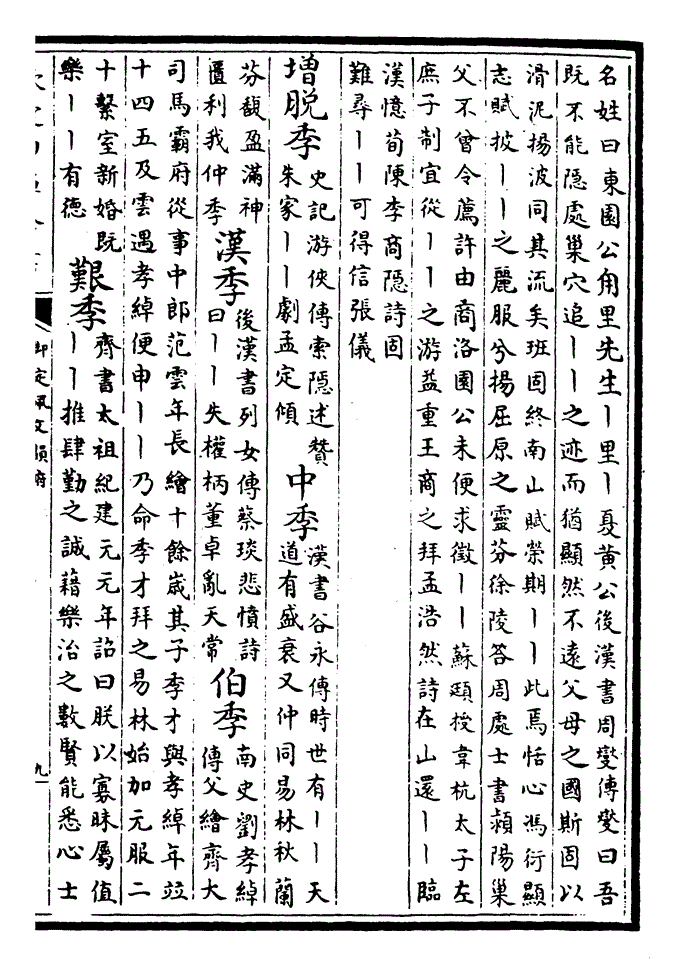 名姓曰東園公甪里先生丨里丨夏黃公後漢書周燮傳燮曰吾
既不能隱處巢穴追丨丨之迹而猶顯然不遠父母之國斯固以
滑泥揚波同其流矣班固終南山賦榮期丨丨此焉恬心馮衍顯
志賦披丨丨之麗服兮揚屈原之靈芬徐陵答周處士書潁陽巢
父不曾令薦許由商洛園公未便求徵丨丨蘇頲授韋杭太子左
庶子制宜從丨丨之游益重王商之拜孟浩然詩在山還丨丨臨
漢憶荀陳李商隱詩固
難尋丨丨可得信張儀
增脫季
史記游俠傳索隱述贊
朱家丨丨劇孟定傾
中季
漢書谷永傳時世有丨丨天
道有盛衰又仲同易林秋蘭
芬馥盈滿神
匱利我仲季
漢季
後漢書列女傳蔡琰悲憤詩
曰丨丨失權柄董卓亂天常
伯季
南史劉孝綽
傳父繪齊大
司馬霸府從事中郎范雲年長繪十餘歲其子季才與孝綽年竝
十四五及雲遇孝綽便申丨丨乃命季才拜之易林始加元服二
十繫室新婚既
樂丨丨有德
艱季
齊書太祖紀建元元年詔曰朕以寡昧屬值
丨丨推肆勤之誠藉樂治之數賢能悉心士
御定佩文韻府
九